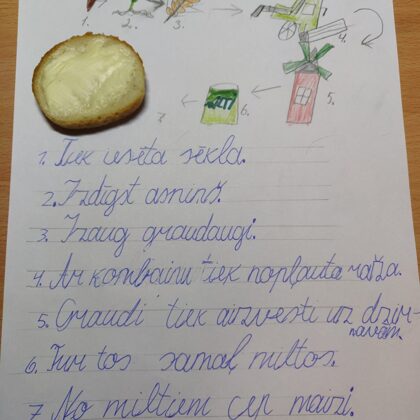 1. 2. 3. 4.
5.
6.
7.
1. Tiek iesēta sēkla.
2. Izdīgst asniņš.
3. Izaug graudaugi.
4. Ar kombainu tiek nopļauta raža.
5. Graudi tiek aizvesti uz dzir-
navām.
6. Kur tos samaļ miltos.
7 No miltiem cep maizi.